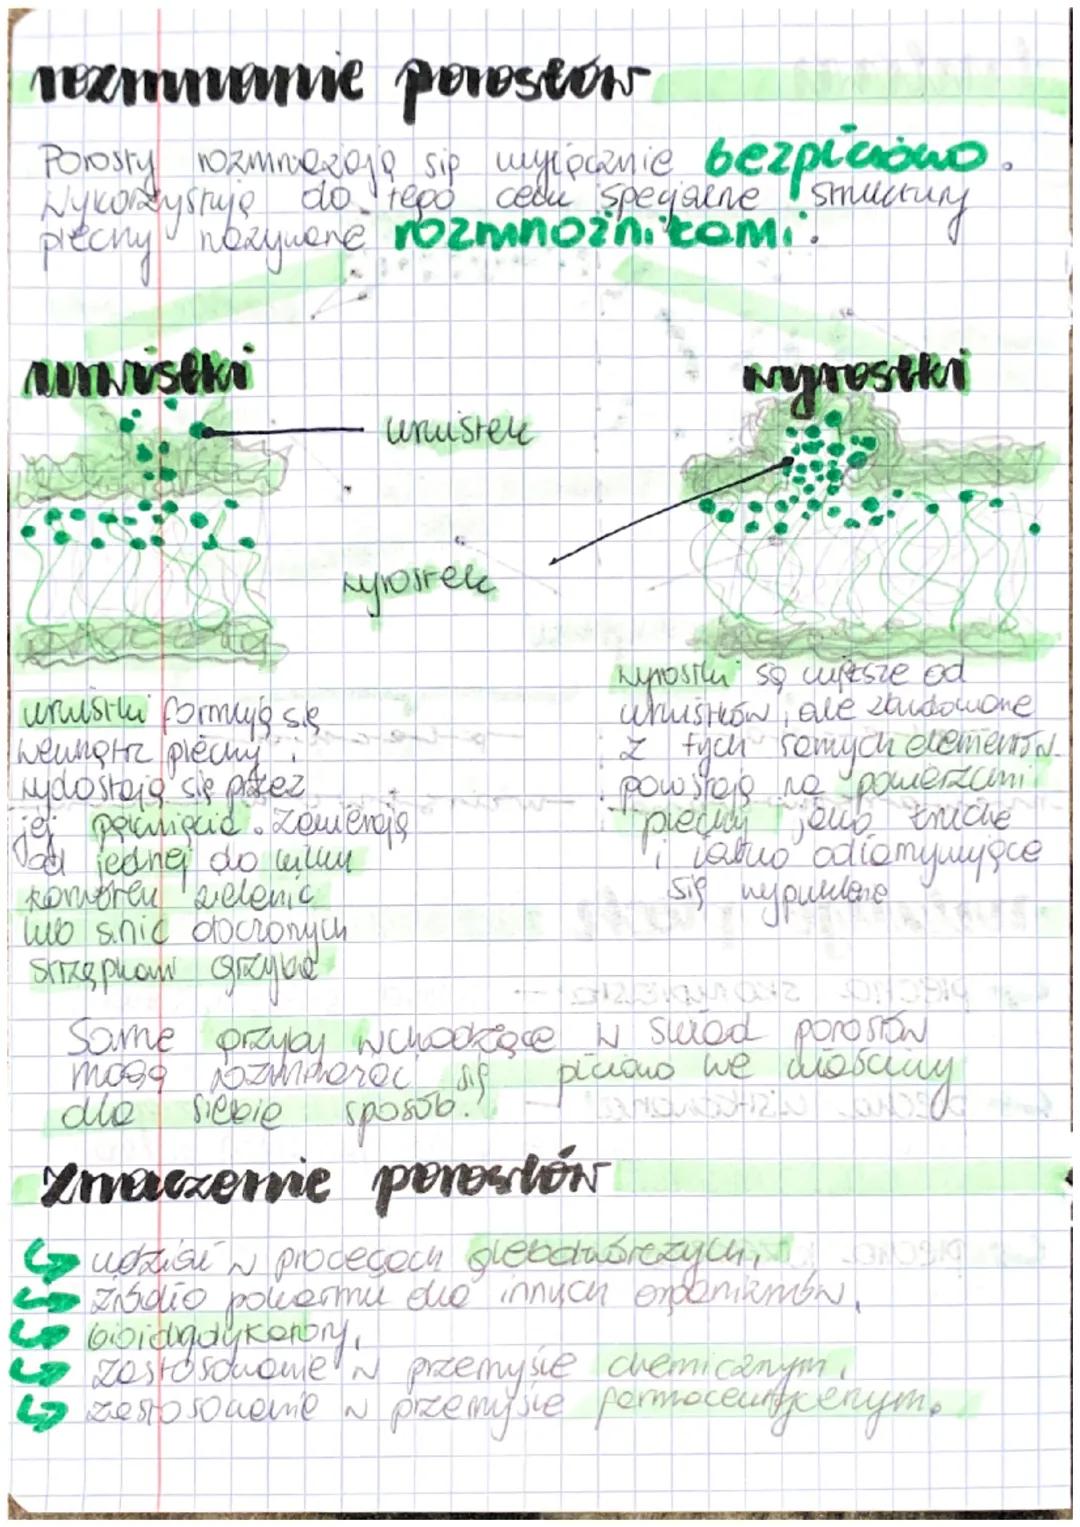 rozmnanie porostów
Porosty rozmnażają się wyłącznie bezpłciowo.
Wykorzystuję do tego celu specjalne struktury
plechy nazywane rozmnóżnikami.
urwistki
wyrostki
urwistek
wyrostek
urwistki formują się
wewnątrz plechy i
wydostają się przez
jej pęknięcia. Zawierają
od jednej do kilku
komórek zielenic
lub sinic otoczonych
strzępkami grzyba
wyrostki są większe od
urwistków, ale zbudowane
z tych samych elementów.
powstają na powierzchni
plechy jako kruche
i łatwo odłamywujące
się wypukłone
Same grzyby wchodzące w skład porostów
mogą rozmnażać się płciowo we właściwy
dla siebie sposób.
Znaczenie porostów
udział w procesach glebotwórczych,
źródło pokarmu dla innych organizmów,
zastosowanie w przemyśle chemicznym,
zastosowanie w przemyśle